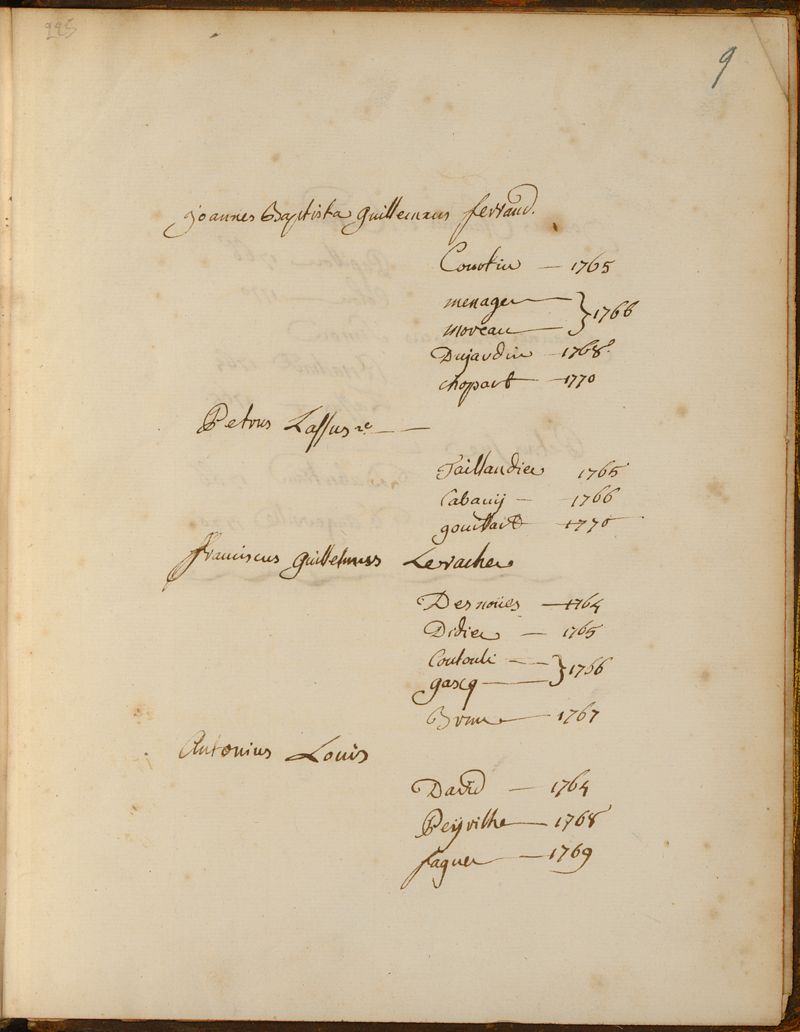 9
Joannes Baptista Guillelmus ferrand.
Courtin — 1765
menager —
moreau — } 1766
Dujardin — 1768.
chopart — 1770
Petrus Lassus —
Taillandier 1765
Cabany — 1766
gouillart — 1770
Franciscus Guillelmus Levacher
Desnoües — 1764
Didier — 1765
Coutouli —
gascq — } 1766
Brun — 1767
Antonius Louis
David — 1764
Peyrilhe — 1768
faguer — 1769